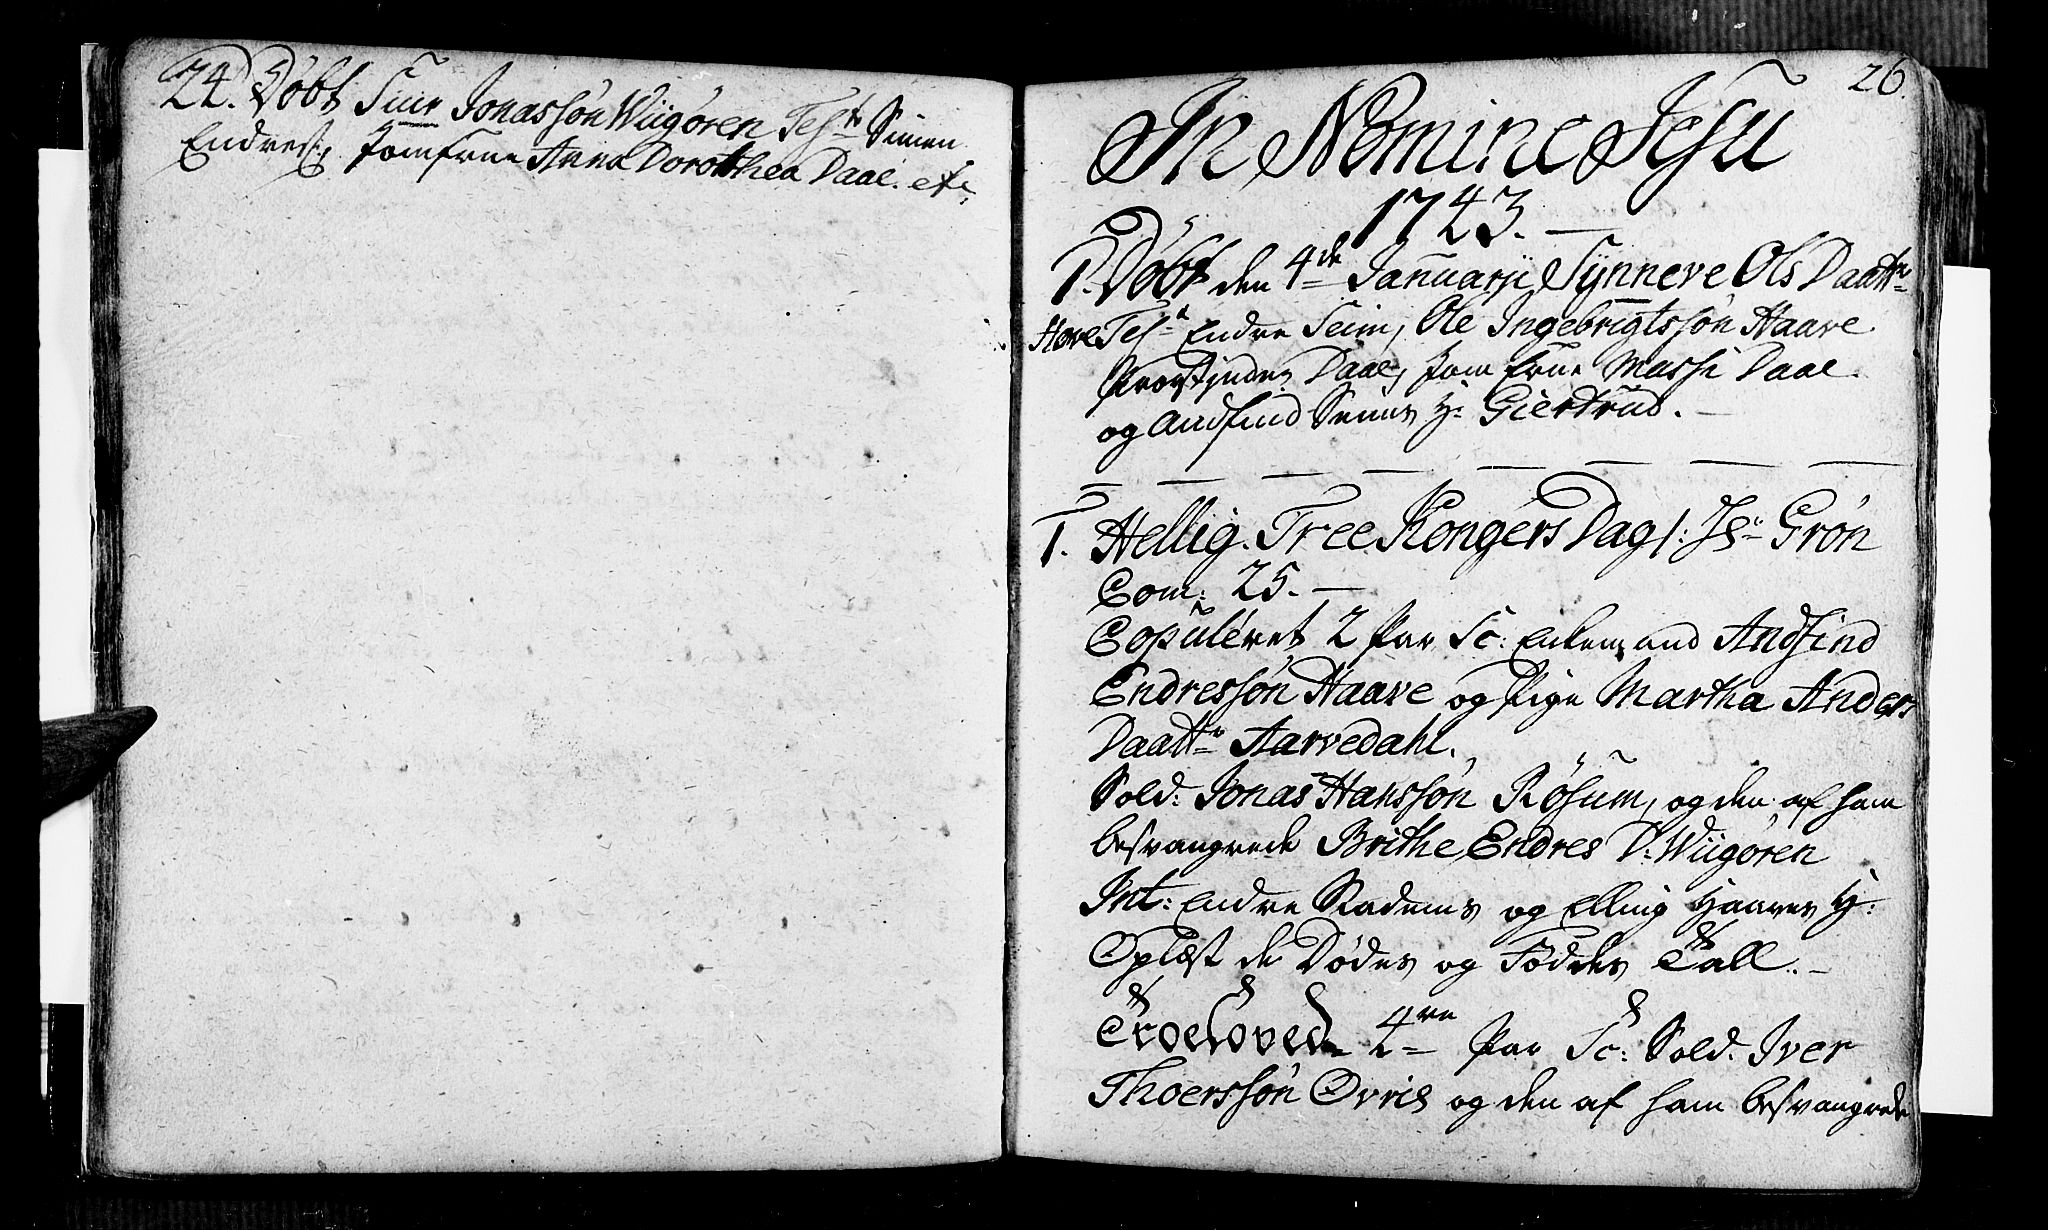 24. Døbt Siur Jonassøn Wiigøren Test: Simen
Endres: Jomfrue Anna Dorothea Daae. etc.
26.
In Nomine Jesu
1743.
1. Døbt den 4de Januarji Synneve Ols Daattr
Hove Test: Endre Seim, Ole Ingebrigtssøn Haave
Provstinde Daae, Jomfrue Massi Daae
og Andfind Seims H: Giertrud.
1. Hellig. Tree Kongers Dag /: Js: Grøn
Com: 25.
Copuleret 2 Par Sc: Enkemand Andfind
Endressøn Haave og Pige Martha Anders
Daattr Aarvedahl.
Sold: Jonas Hanssøn Røsum, og den af ham
besvangrede Brithe Endres D: Wiigøren
Int: Endre Stadems og Elling Haaves H:
Oplæst de Dødes og Føddes Tall.
Troeloved 2re Par Sc: Sold. Iver
Thoerssøn Øvris og den af ham besvangrede